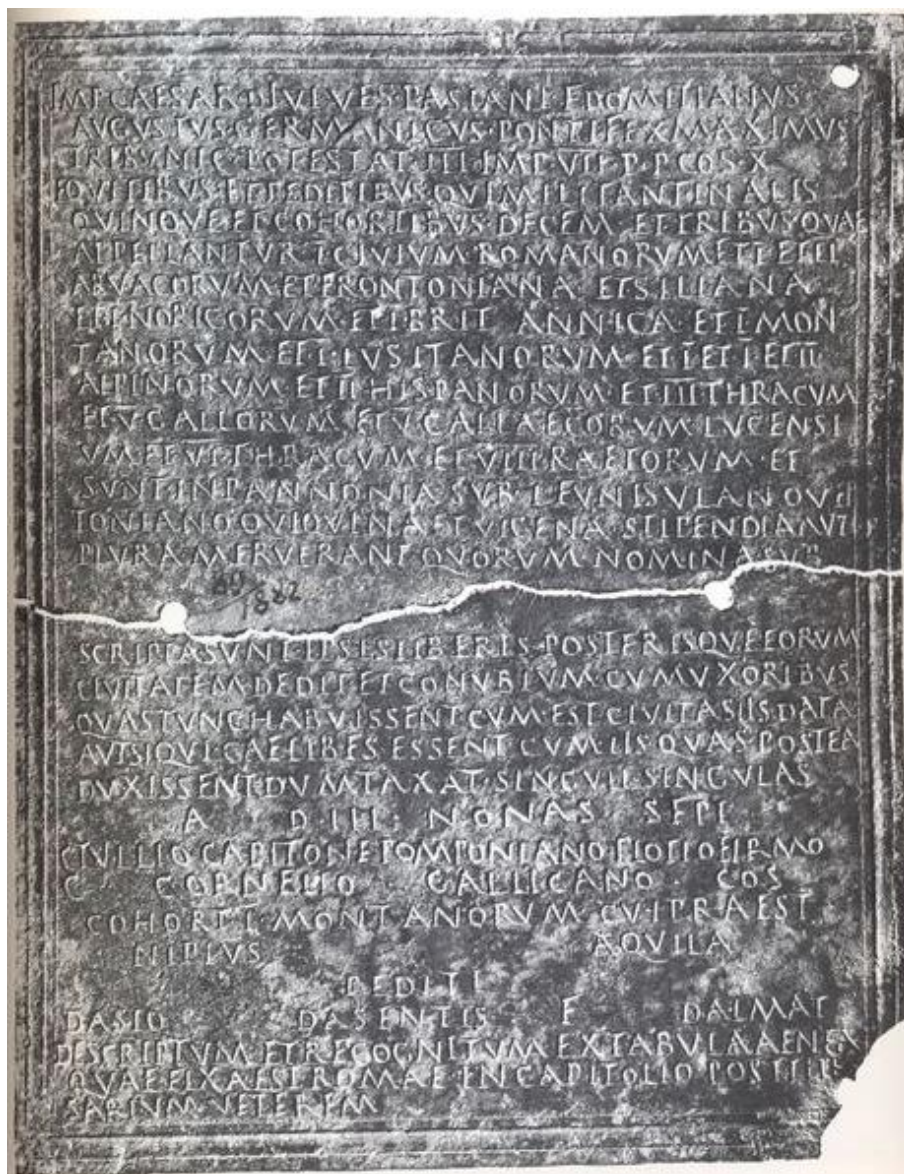 IMP·CAESAR·DIVI·VESPASIANI·F·DOMITIANVS
AVGVSTVS·GERMANICVS·PONTIFEX MAXIMVS
TRIBVNIC·POTESTAT·III·IMP·VII·P·P·COS·X
EQVITIBVS·ET PEDITIBVS·QVI MILITANT IN ALIS
QVINQVE ET COHORTIBVS·DECEM·ET TRIBVS·QVAE
APPELLANTVR·I·CIVIVM·ROMANORVM ET
ARVACORVM·ET FRONTONIANA ET SILIANA
ET I NORICORVM·ET I·BRITANNICA·ET I MON
TANORVM ET I·LVSITANORVM·ET I ET I ET II
ALPINORVM·ET II·HISPANORVM·ET III THRACVM
ET V·GALLORVM·ET V CALLAECORVM LVCENSI
VM·ET VI·THRACVM·ET VIII RAETORVM·ET
SVNT IN PANNONIA SVB L FVNISVLANO
TONIANO QVI QVINA ET VICENA STIPENDIA
PLVRA MERVERANT QVORVM NOMINA
89/1882
SCRIPTA SVNT IPSIS LIBERIS·POSTERISQVE EORVM
CIVITATEM·DEDIT ET CONVBIVM·CVM VXORIBVS
QVAS TVNC HABVISSENT CVM·EST CIVITAS IIS DATA
AVT SI QVI CAELIBES ESSENT CVM·IIS QVAS POSTEA
DVXISSENT·DVMTAXAT·SINGVLI·SINGVLAS
A D III·NONAS SEPT
C IVLLIO CAPITONE POMPONIANO PLOTIO FIRMO
C CORNELIO GALLICANO·COS
COHORT I·MONTANORVM·CVI PRAEST
AQVILA
PEDITI
DASIO DASENTIS F DALMAT
DESCRIPTVM·ET RECOGNITVM EX TABVLA AENEA
QVAE FIXA EST ROMAE IN CAPITOLIO POST
SARIVM·VETEREM